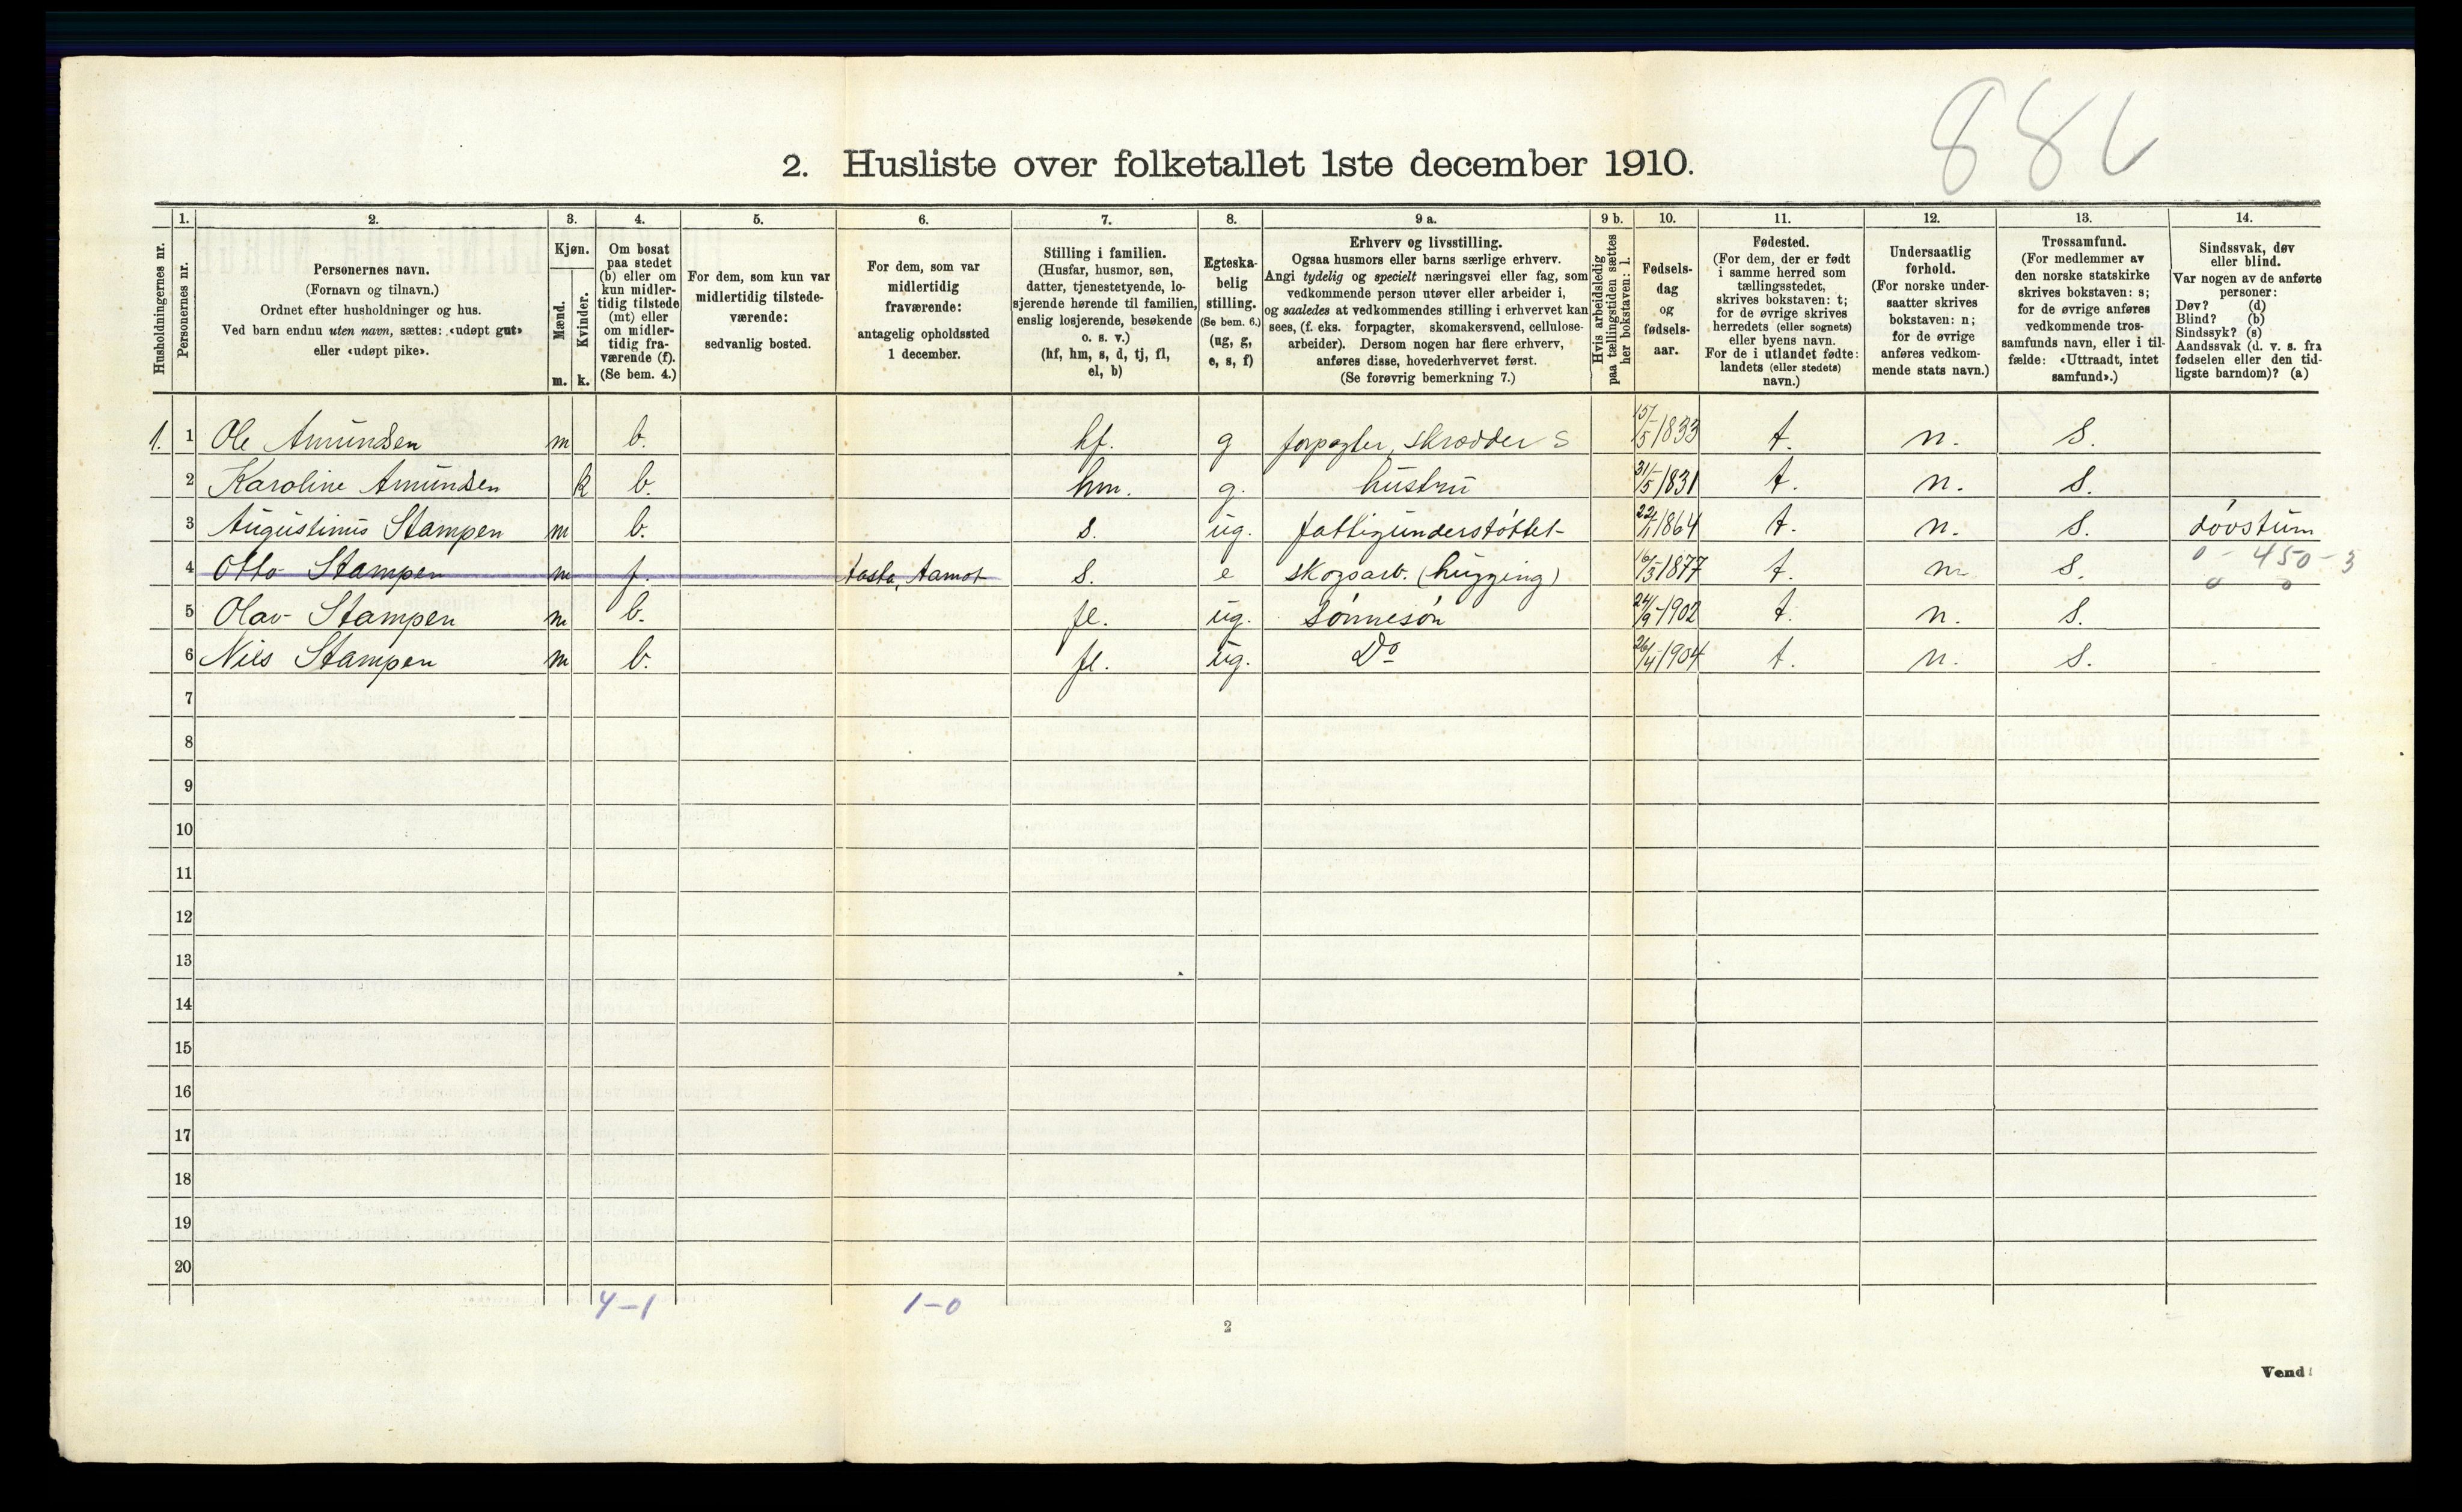 886
2. Husliste over folketallet 1ste december 1910.
1. 2. 3. 4. 5. 6. 7. 8. 9 a. 9 b. 10. 11. 12. 13. 14.
Husholdningernes nr.
Personernes nr.
Personernes navn.
(Fornavn og tilnavn.)
Ordnet efter husholdninger og hus.
Ved barn endnu uten navn, sættes: «udøpt gut»
eller «udøpt pike».
Kjøn.
Mænd.
Kvinder.
m. k.
Om bosat
paa stedet
(b) eller om
kun midler-
tidig tilstede
(mt) eller
om midler-
tidig fra-
værende (f).
(Se bem. 4.)
For dem, som kun var
midlertidig tilstede-
værende:
sedvanlig bosted.
For dem, som var
midlertidig
fraværende:
antagelig opholdssted
1 december.
Stilling i familien.
(Husfar, husmor, søn,
datter, tjenestetyende, lo-
sjerende hørende til familien,
enslig losjerende, besøkende
o. s. v.)
(hf, hm, s, d, tj, fl,
el, b)
Egteska-
belig
stilling.
(Se bem. 6.)
(ug, g,
e, s, f)
Erhverv og livsstilling.
Ogsaa husmors eller barns særlige erhverv.
Angi tydelig og specielt næringsvei eller fag, som
vedkommende person utøver eller arbeider i,
og saaledes at vedkommendes stilling i erhvervet kan
sees, (f. eks. forpagter, skomakersvend, cellulose-
arbeider). Dersom nogen har flere erhverv,
anføres disse, hovederhvervet først.
(Se forøvrig bemerkning 7.)
Hvis arbeidsledig
paa tællingstiden sættes
her bokstaven: l.
Fødsels-
dag
og
fødsels-
aar.
Fødested.
(For dem, der er født
i samme herred som
tællingsstedet,
skrives bokstaven: t;
for de øvrige skrives
herredets (eller sognets)
eller byens navn.
For de i utlandet fødte:
landets (eller stedets)
navn.)
Undersaatlig
forhold.
(For norske under-
saatter skrives
bokstaven: n;
for de øvrige
anføres vedkom-
mende stats navn.)
Trossamfund.
(For medlemmer av
den norske statskirke
skrives bokstaven: s;
for de øvrige anføres
vedkommende tros-
samfunds navn, eller i til-
fælde: «Uttraadt, intet
samfund».)
Sindssvak, døv
eller blind.
Var nogen av de anførte
personer:
Døv? (d)
Blind? (b)
Sindssyk? (s)
Aandssvak (d. v. s. fra
fødselen eller den tid-
ligste barndom)? (a)
1. 1 Ole Amundsen m b. hf. g forpagter, skrædder S 15/5 1833 t. n. s.
2 Karoline Amundsen k b. hm. g. hustru 31/5 1831 t. n. s.
3 Augustinus Stampen m b. s. ug. fattigunderstøttet 22/1 1864 t. n. s. døvstum
4 Otto Stampen m f. Aasta, Aamot s. e skogsarb. (hugging) 16/3 1877 t. n s. 0 - 450 - 3
0 0
5 Olav Stampen m b. fl. ug. sønnesøn 24/9 1902 t. n. s.
6 Nils Stampen m b. fl. ug. Do 26/4 1904 t. n. s.
7
8
9
10
11
12
13
14
15
16
17
18
19
20
4-1 1-0
2
Vend!